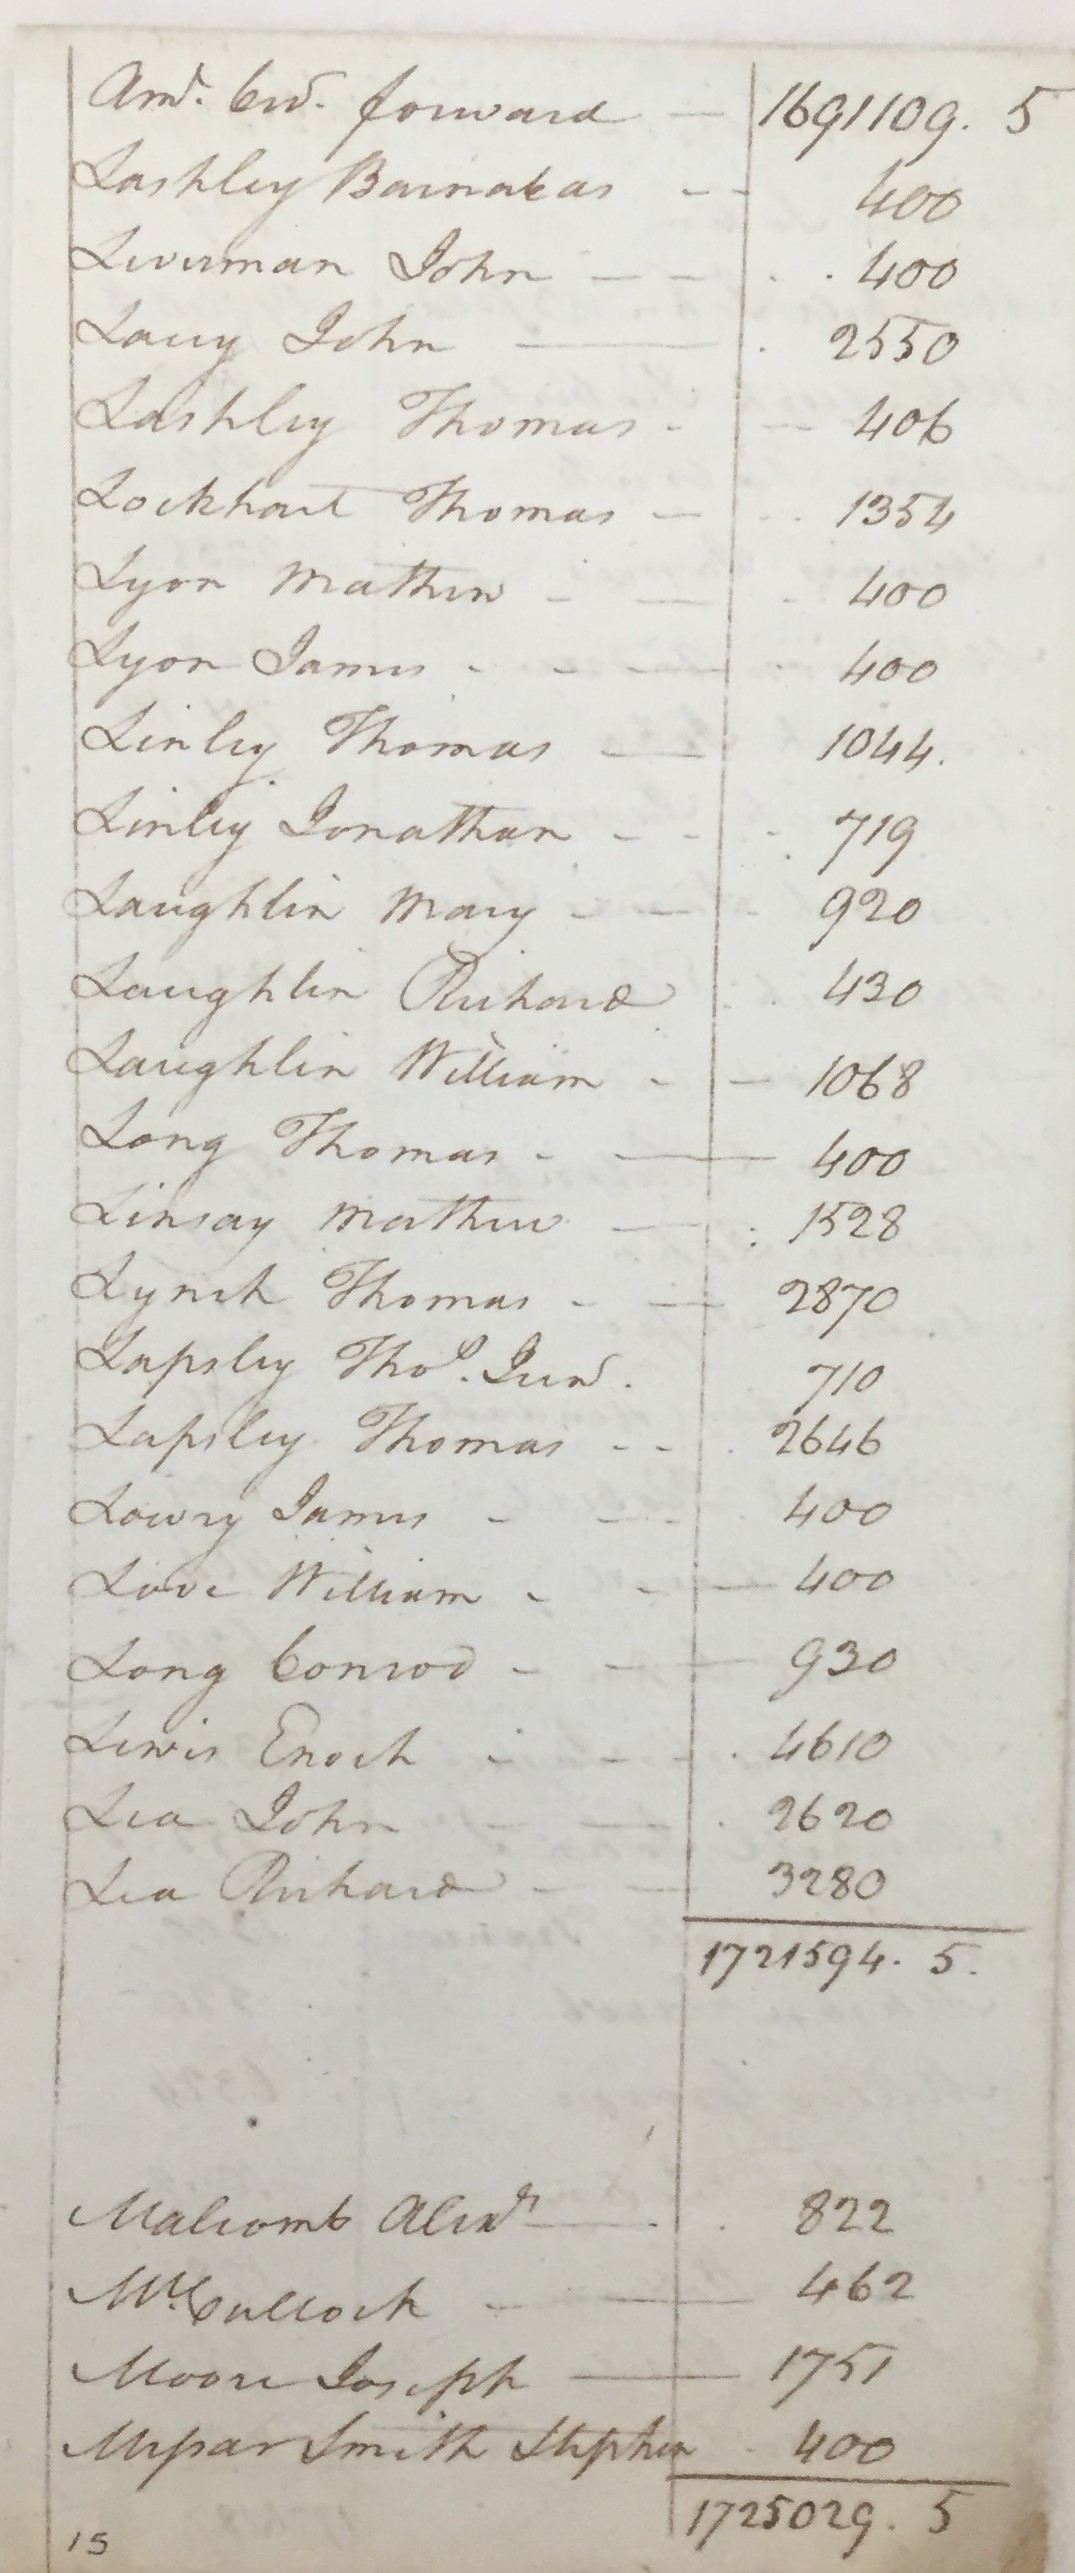 Amt. brd. forward — 1691109. 5
Lashley Barnabas -- 400
Liverman John -- 400
Lacey John — 2550
Lashley Thomas - 406
Lockhart Thomas - 1354
Lyon Mathew - 400
Lyon James - 400
Linley Thomas — 1044.
Linley Jonathan - 719
Laughlin Mary - 920
Laughlin Richard 430
Laughlin William - 1068
Long Thomas - 400
Linsay Mathew - 1528
Lynch Thomas - 2870
Lapsley Thos. Junr. 710
Lapsley Thomas -- 2646
Lowry James - 400
Love William - 400
Long Conrod - 930
Lewis Enoch - 4610
Lea John - 2620
Lea Richard - 3280
1721594. 5.
Malcomb Alexdr — 822
McCullock - 462
Moore Joseph — 1751
Smith Stephen 400
1725029. 5
15